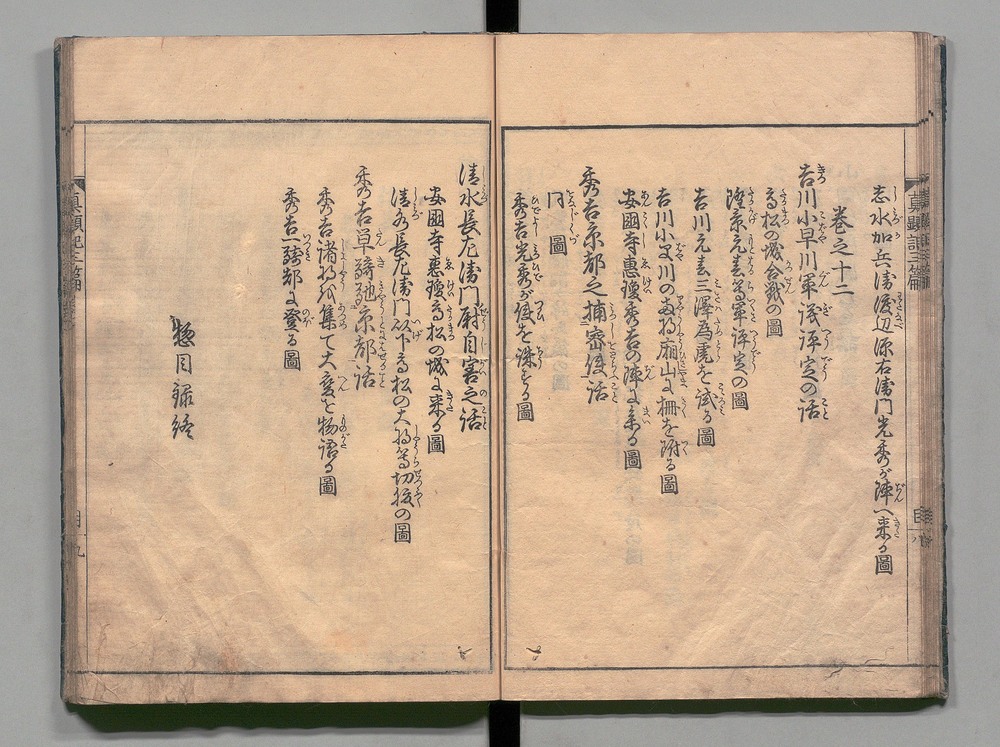 志水加兵衛渡辺源右衛門光秀が陣へ来る圖
巻之十二
吉川小早川軍議評定の話
高松の城合戦の圖
隆景元春等軍評定の圖
吉川元春三澤為虎を試る圖
吉川小早川の両将廂山に柵を附る圖
安國寺惠瓊秀吉の陣に来る圖
秀吉京都之捕密使話
同圖
秀吉光秀が使を誅する圖
清水長左衛門尉自害之話
安國寺惠瓊高松の城に来る圖
清水長左衛門以下高松の大将等切腹の圖
秀吉単騎馳京都話
秀吉諸将を集て大変を物語る圖
秀吉一騎都に登る圖
惣目録終
真顕記三篇
目
九